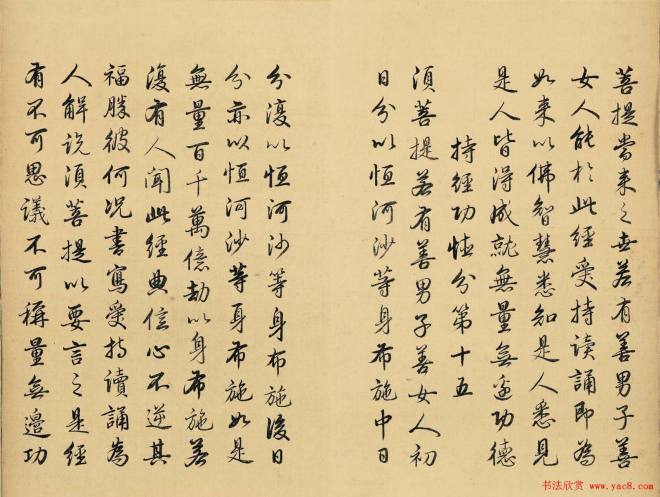 菩提當来之世若有善男子善
女人能於此經受持读誦即為
如来以佛智慧悉知是人悉見
是人皆得成就無量無邊功德
持經功德分第十五
須菩提若有善男子善女人初
日分以恒河沙等身布施中日
分復以恒河沙等身布施後日
分亦以恒河沙等身布施如是
無量百千萬億劫以身布施若
復有人聞此經典信心不逆其
福勝彼何况書寫受持讀誦為
人解说須菩提以要言之是經
有不可思議不可稱量無邊功
书法欣赏
www.yac8.com